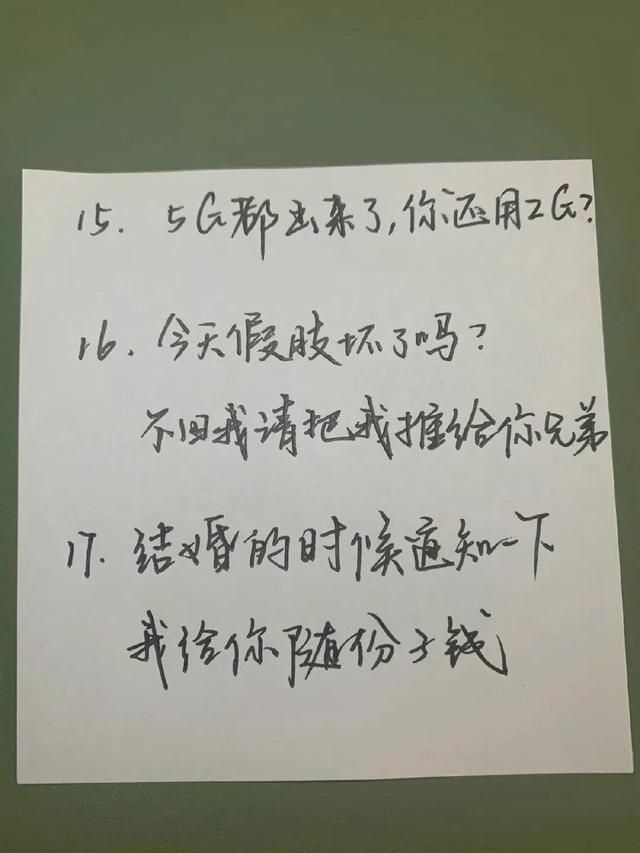 15. 5G都出来了,你还用2G?
16. 今天假肢坏了吗?
不回我请把我推给你兄弟
17. 结婚的时候通知一下
我给你随份子钱